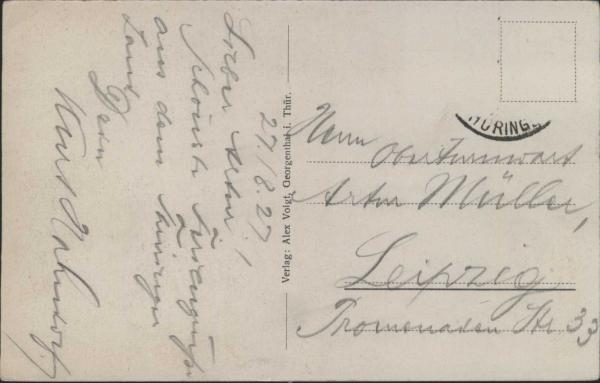 27./8.27
Lieber Artur!
Schönste Feriengrüße
aus dem Thüringer
Land
Dein
Kurt Hahndorf.
Verlag: Alex Voigt, Georgenthal i. Thür.
THÜRING
Herrn
Oberturnwart
Artur Müller,
Leipzig
Promenaden Str. 33